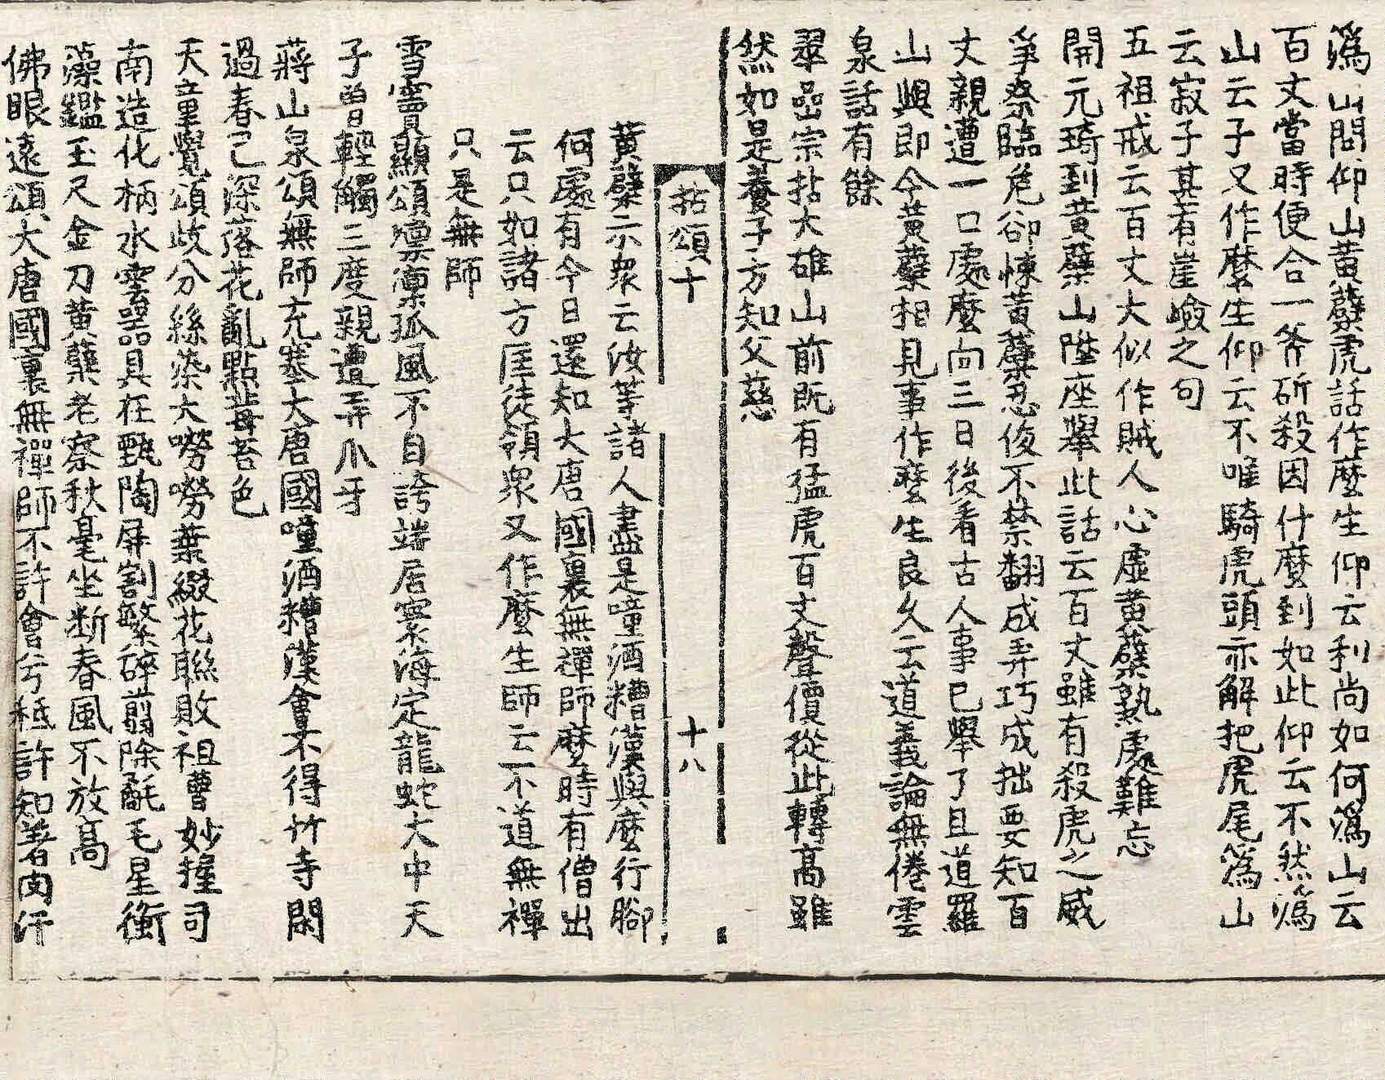 潙山問仰山黃蘗虎話作麼生仰云和尚如何潙山云
百丈當時便合一斧斫殺因什麼到如此仰云不然潙
山云子又作麼生仰云不唯騎虎頭亦解把虎尾潙山
云寂子甚有崖嶮之句
五祖戒云百丈大似作賊人心虛黃蘗熟處難忘
開元琦到黃蘗山陞座舉此話云百丈雖有殺虎之威
爭奈臨危卻悚黃蘗忍俊不禁翻成弄巧成拙要知百
丈親遭一口處麼向三日後看古人事已舉了且道羅
山與即今黃蘗相見事作麼生良久云道義論無倦雲
泉話有餘
翠嵓宗拈大雄山前既有猛虎百丈聲價從此轉高雖
然如是養子方知父慈
拈頌十 十八
黃蘗示衆云汝等諸人盡是噇酒糟漢與麼行腳
何處有今日還知大唐國裏無禪師麼時有僧出
云只如諸方匡徒領衆又作麼生師云不道無禪
只是無師
雪竇顯頌凜凜孤風不自誇端居寰海定龍蛇大中天
子曾輕觸三度親遭弄爪牙
蔣山泉頌無師充塞大唐國噇酒糟漢會不得竹寺閑
過春已深落花亂點莓苔色
天童覺頌歧分絲染太嘮嘮葉綴花聯敗祖曹妙握司
南造化柄水雲器具在甄陶屏割繁碎翦除氄毛星衡
藻鑑玉尺金刀黃蘗老察秋毫坐斷春風不放高
佛眼遠頌大唐國裏無禪師不許會兮秖許知著肉汗